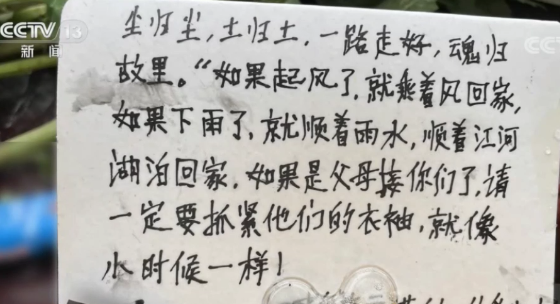 CCTV 13
新闻
尘归尘,土归土,一路走好,魂归
故里。“如果起风了,就乘着风回家,
如果下雨了,就顺着雨水,顺着江河
湖泊回家,如果是父母接你们了,请
一定要抓紧他们的衣袖,就像
小时候一样!